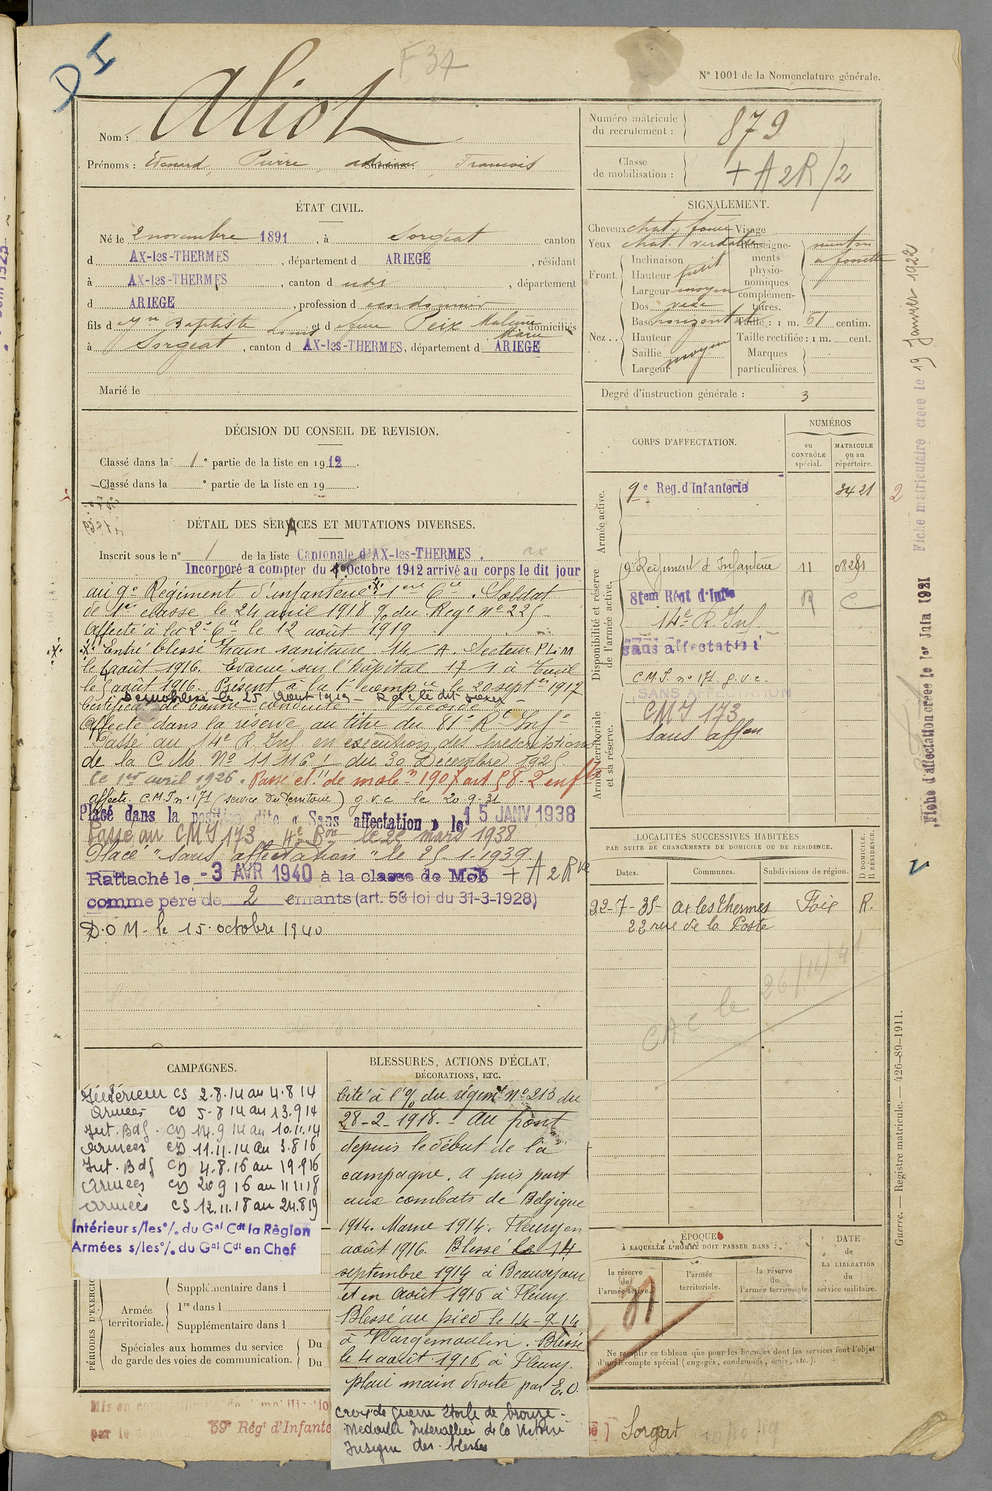 DI
F 37
N° 1001 de la Nomenclature générale.
Nom : Aliot
Prénoms : Edouard, Pierre, François
Surnoms :
Numéro matricule du recrutement : 879
Classe de mobilisation : + A 2 R/2
ÉTAT CIVIL.
Né le 2 novembre 1891, à Sorgeat canton
d AX-les-THERMES, département d ARIEGE, résidant
à AX-les-THERMES, canton d udt, département
d ARIEGE, profession d cordonnier
fils d Jn Baptiste Louis et d Anne Peix domiciliés
à Sorgeat, canton d AX-les-THERMES, département d ARIEGE
Marié le
SIGNALEMENT.
Cheveux chat. foncé Visage
Yeux chat. verdâtre
Renseignements physionomiques complémentaires.
menton à fossette
Front.
Inclinaison
Hauteur petit
Largeur moyen
Nez...
Dos
Base
Hauteur
Saillie moyen
Largeur
Taille : 1 m. 61 centim.
Taille rectifiée : 1 m. cent.
Marques particulières.
Degré d'instruction générale : 3
DÉCISION DU CONSEIL DE REVISION.
Classé dans la 1e partie de la liste en 1912
Classé dans la e partie de la liste en 19
DÉTAIL DES SERVICES ET MUTATIONS DIVERSES.
Inscrit sous le n° 1 de la liste Cantonale d'AX-les-THERMES.
Incorporé a compter du 1er octobre 1912 arrivé au corps le dit jour
au 9e Régiment d'infanterie 1ère Cie. Soldat
de 1ère classe le 24 avril 1918 % du Regt n° 225
Affecté à la 2e Cie le 12 août 1919
Entré blessé train sanitaire 14 A. Secteur
le août 1916. Evacué sur l'hôpital 17 à
le 5 août 1916. Présent à la Cempie le 20 sept 1917
Certificat de bonne conduite
Affecté dans la réserve au titre du 81e R. Infie
Passé au 14e R. Inf en exécution des prescriptions
de la C.M. N° du 30 Décembre 1925
le 1er avril 1926.
affecté C.M.I n° 171 (service du territoire) g.v.c le 20-9-31
Placé dans la position dite « Sans affectation » le 15 JANV 1938
Passé au CMI 173 le 25 mars 1938
Placé "sans affectation" le 25-1-1939
Rattaché le -3 AVR 1940 à la classe de Mob + A 2 R
comme père de 2 enfants (art. 58 loi du 31-3-1928)
D.O M. le 15 octobre 1940
CORPS D'AFFECTATION.
NUMÉROS
au CONTRÔLE spécial.
MATRICULE ou au répertoire.
Armée active.
9e Reg. d'Infanterie 3421
Disponibilité et réserve de l'armée active.
9e Régiment d'Infanterie 11
81em Regt d'Infie
14e R. Inf.
Sans affectation
C.M.I. n° 171 g.v.c.
SANS AFFECTATION
Armée territoriale et sa réserve.
CMI 173
Sans affon
LOCALITÉS SUCCESSIVES HABITÉES
PAR SUITE DE CHANGEMENTS DE DOMICILE OU DE RÉSIDENCE.
Dates. Communes. Subdivisions de région. D DOMICILE. R RÉSIDENCE.
22-7-35 Ax les Thermes Foix R.
22 rue de la Poste
CAC le 26/11/41
CAMPAGNES.
Intérieur CS 2.8.14 au 4.8.14
Armées CD 5-8 14 au 13.9.14
Int. Bdg. CD 14.9 14 au 10.11.14
Armées CD 11.11.14 au 3.8.16
Int. Bdg CD 4.8.16 au 19 9 16
Armées CD 20 9 16 au 11 11 18
Armées CS 12.11.18 au 24.8.19
Intérieur s/les°/. du Gal Cdt la Région
Armées s/les°/. du Gal Cdt en Chef
BLESSURES, ACTIONS D'ÉCLAT,
DÉCORATIONS, ETC.
Cité à l'% du régimt n° 213 du
28-2-1918. Au front
depuis le début de la
campagne. a pris part
aux combats de Belgique
1914. Marne 1914. Fleury en
août 1916. Blessé le 14
septembre 1914 à Beausejour
et en août 1916 à Fleury.
Blessé au pied le 14-9-14
à Wargemoulin. Blessé
le 4 août 1916 à Fleury.
plaie main droite par E.O.
Croix de guerre étoile de bronze
Médaille Interalliée de la Victoire
Insigne des blessés
PÉRIODES D'EXERCICES
Supplémentaire dans l
Armée territoriale.
1re dans l
Supplémentaire dans l
Spéciales aux hommes du service de garde des voies de communication.
Du
Du
ÉPOQUE
À LAQUELLE L'HOMME DOIT PASSER DANS :
la réserve de l'armée active.
l'armée territoriale.
la réserve de l'armée territoriale
DATE de LA LIBÉRATION du service militaire.
Ne remplir ce tableau que pour les hommes dont les services font l'objet
d'un compte spécial (engagés, condamnés, omis, etc.).
59e Régt d'Infante
Sorgat
Fiche matriculaire créée le 19 Janvier 1922
Fiche d'affectation créée le 1er Juin 1921
Guerre. — Registre matricule. — 426-89-1911.